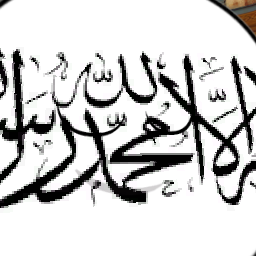 إلا الله محمد رسو